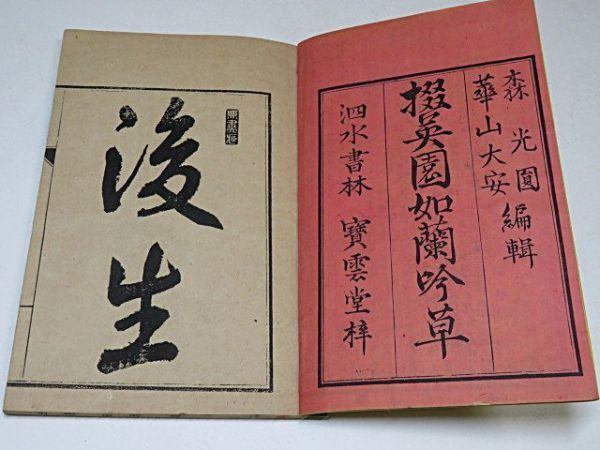 森 光圓編輯
華山大安
掇英園如蘭吟草
泗水書林 寶雲堂梓
後生